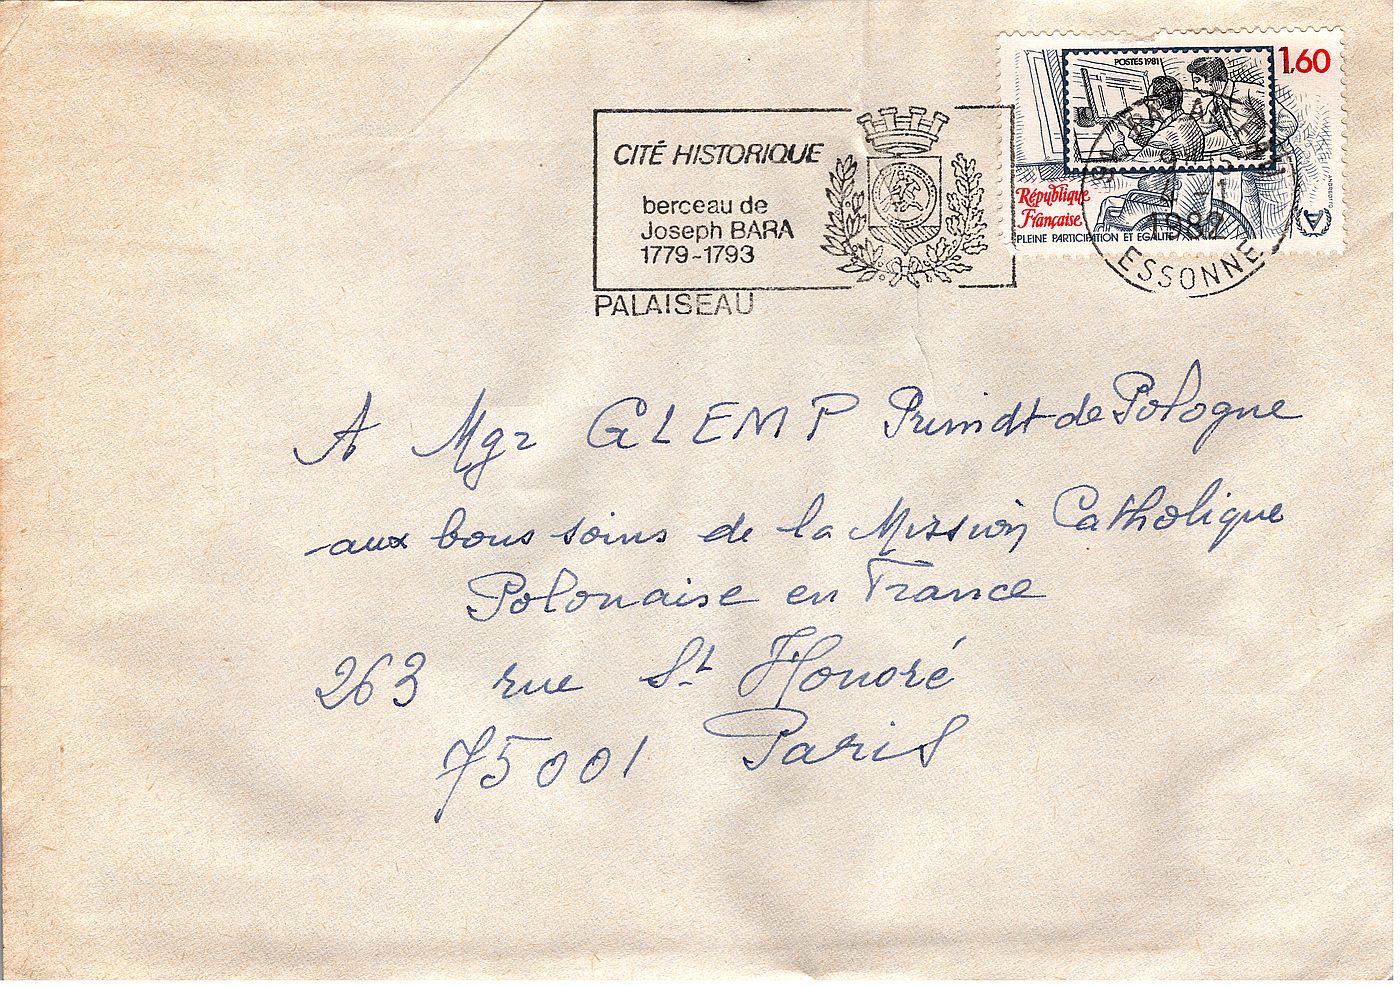 POSTES 1981
1,60
CITÉ HISTORIQUE
berceau de
Joseph BARA
1779-1793
PALAISEAU
République
Française
PLEINE PARTICIPATION ET EGALITE
1982
ESSONNE
A Mgr GLEMP de Pologne
aux bons soins de la Mission Catholique
Polonaise en France
263 rue St Honoré
75001 Paris